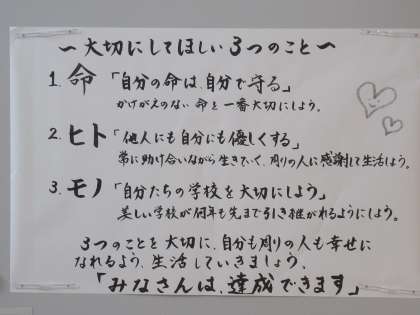 〜大切にしてほしい3つのこと〜
1. 命「自分の命は、自分で守る」
かけがえのない 命を一番大切にしよう。
2. ヒト「他人にも自分にも優しくする」
常に助け合いながら生きていく、周りの人に感謝して生活しよう。
3. モノ「自分たちの学校を大切にしよう」
美しい学校が何年も先まで引き継がれるようにしよう。
3つのことを大切に、自分も周りの人も幸せに
なれるよう、生活していきましょう。
「みなさんは、達成できます」